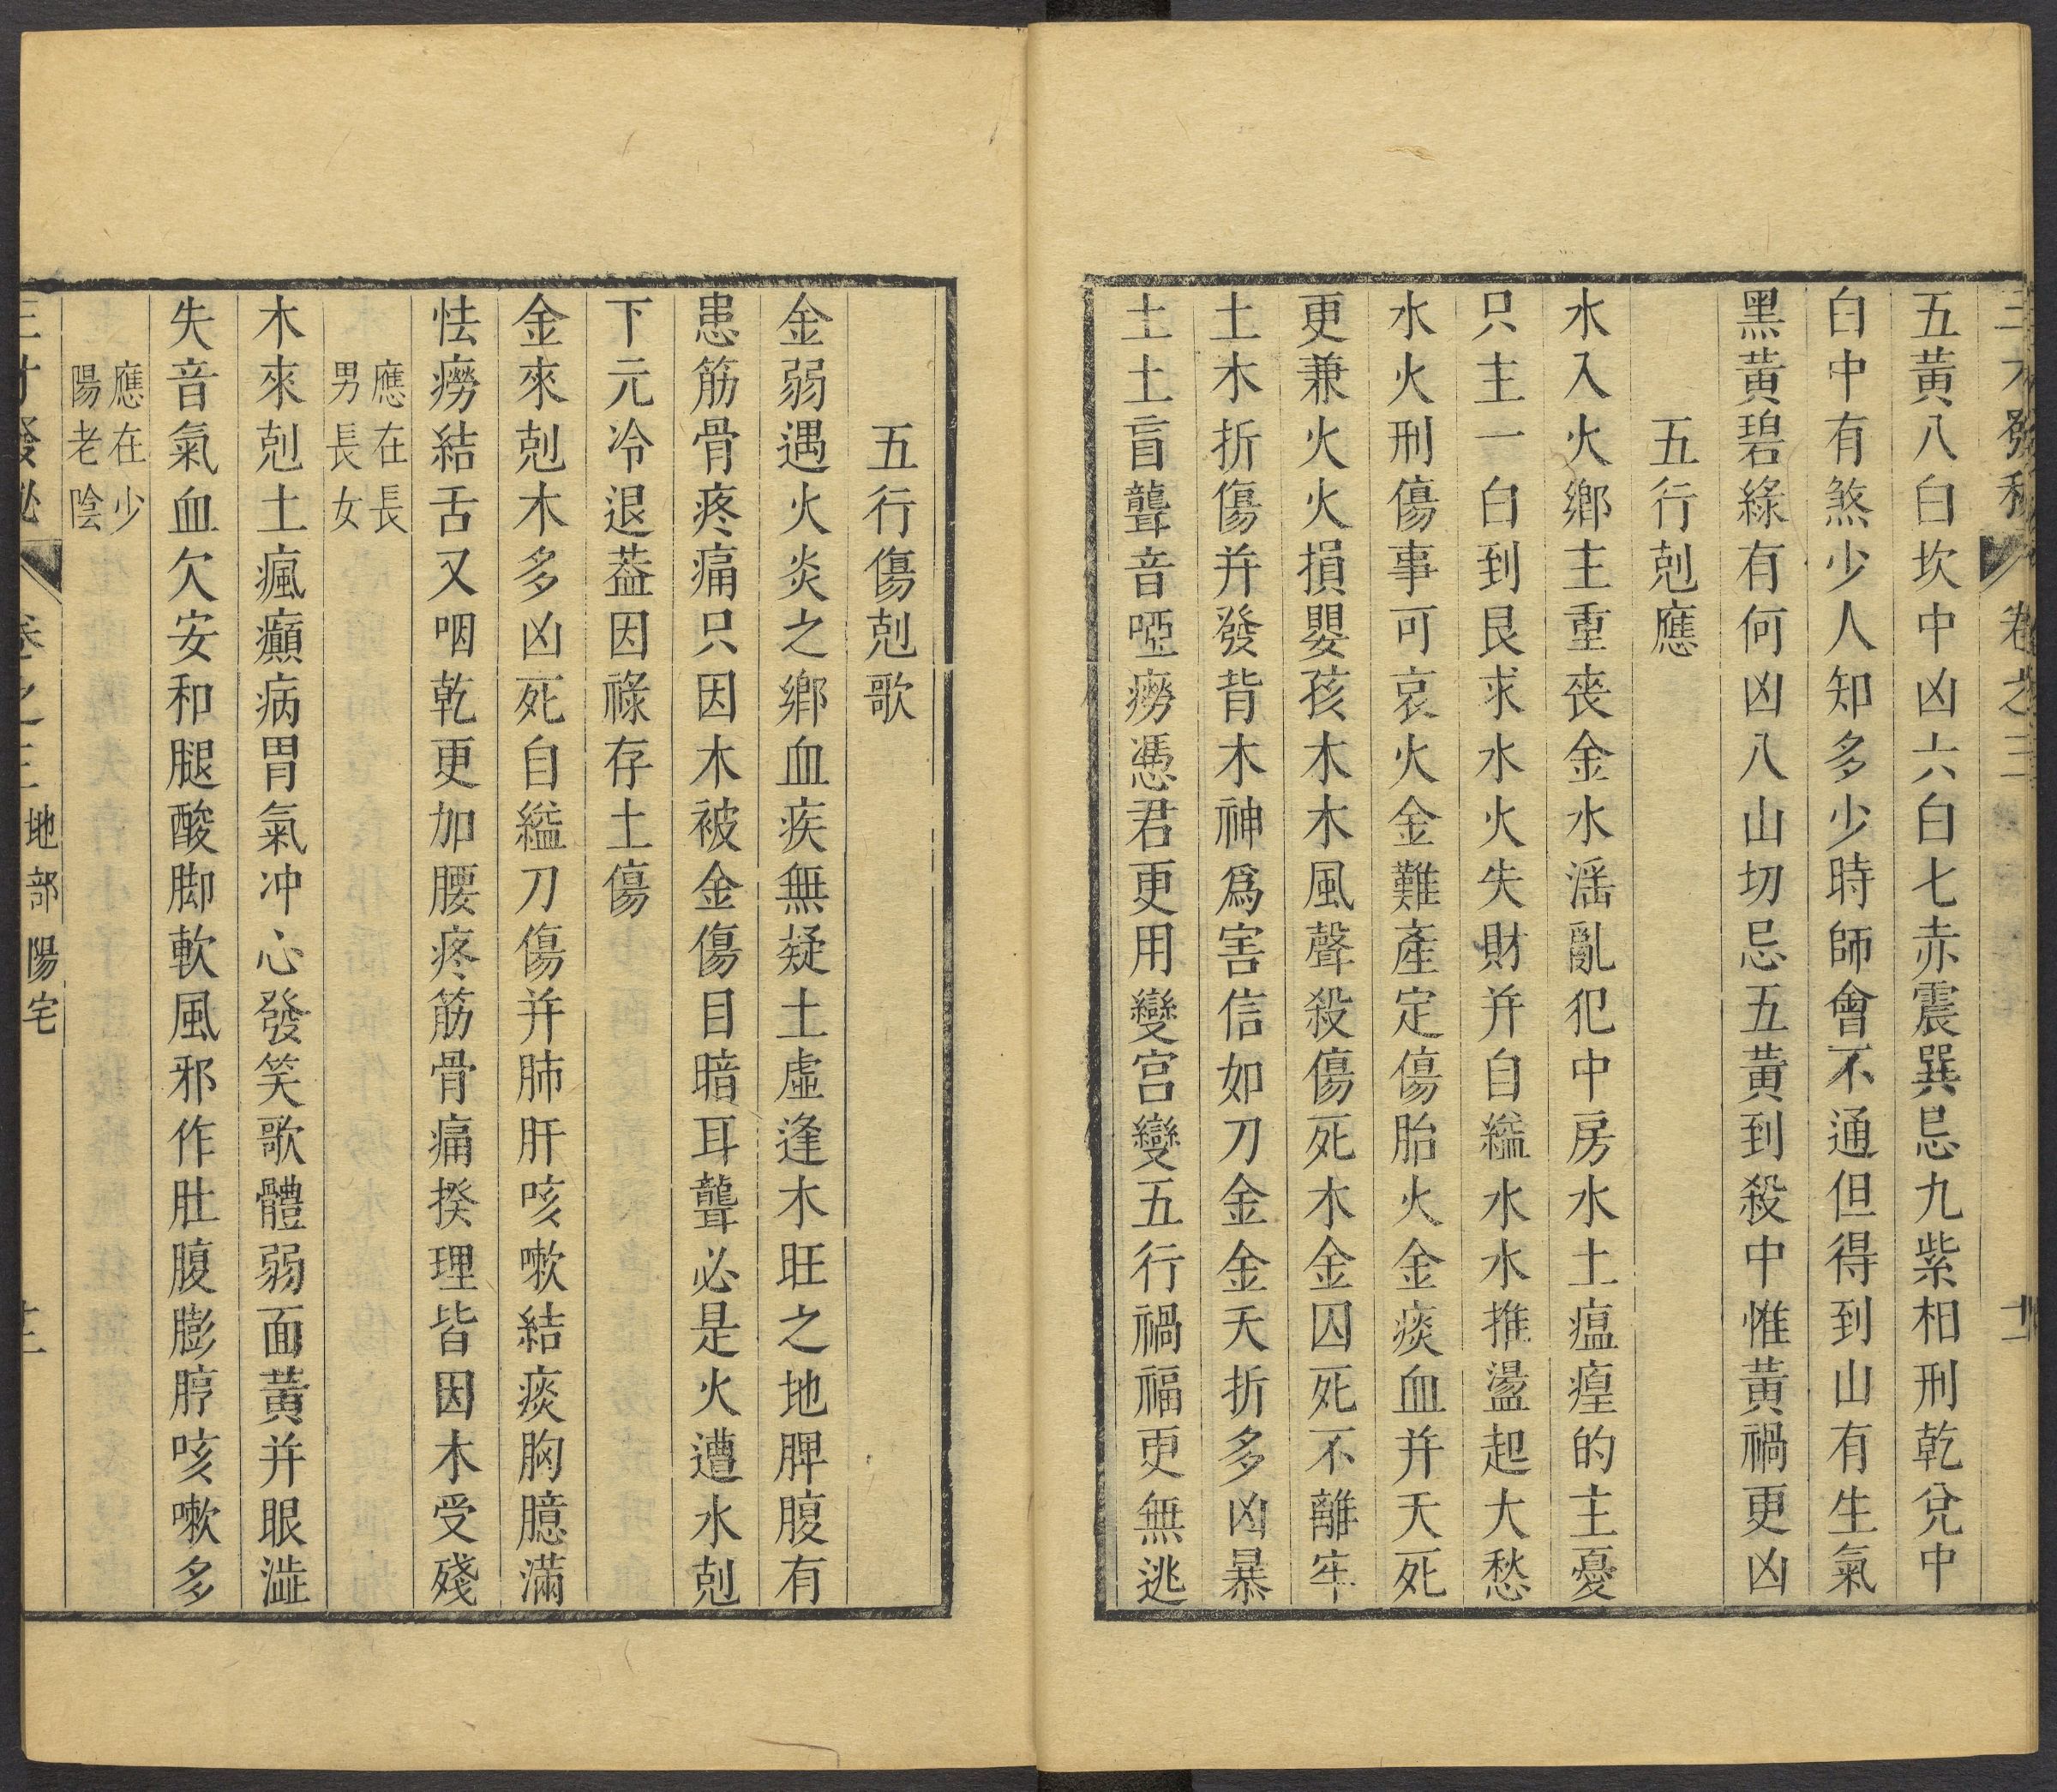 三才發秘 卷之三 十二
五黃八白坎中凶六白七赤震巽忌九紫相刑乾兌中
白中有煞少人知多少時師會不通但得到山有生氣
黑黃碧綠有何凶八山切忌五黃到殺中惟黃禍更凶
五行剋應
水入火鄉主重喪金水滛亂犯中房水土瘟瘽的主憂
只主一白到艮求水火失財并自縊水水推盪起大愁
水火刑傷事可哀火金難產定傷胎火金痰血并夭死
更兼火火損嬰孩木木風聲殺傷死木金囚死不離牢
土木折傷并發背木神爲害信如刀金金夭折多凶暴
土土盲聾音啞癆憑君更用變宮變五行禍福更無逃
五行傷剋歌
金弱遇火炎之鄉血疾無疑土虛逢木旺之地脾腹有
患筋骨疼痛只因木被金傷目暗耳聾必是火遭水剋
下元冷退葢因祿存土傷
金來剋木多凶死自縊刀傷并肺肝咳嗽結痰胸臆滿
怯癆結舌又咽乾更加腰疼筋骨痛揆理皆因木受殘
應在長
男長女
木來剋土瘋癲病胃氣冲心發笑歌體弱面黃并眼澁
失音氣血欠安和腿酸脚軟風邪作肚腹膨脝咳嗽多
應在少
陽老陰
三才發秘 卷之三 地部 陽宅